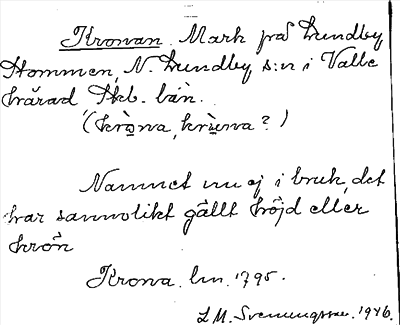 Kronan. Mark på Lundby
Hommen, N. Lundby s:n i Valle
härad, Skb. län.
(kròna, krùna?)
Namnet nu ej i bruk, det
har sannolikt gällt höjd eller
krön
Krona. lm. 1795.
L M. Svenungsson. 1946.